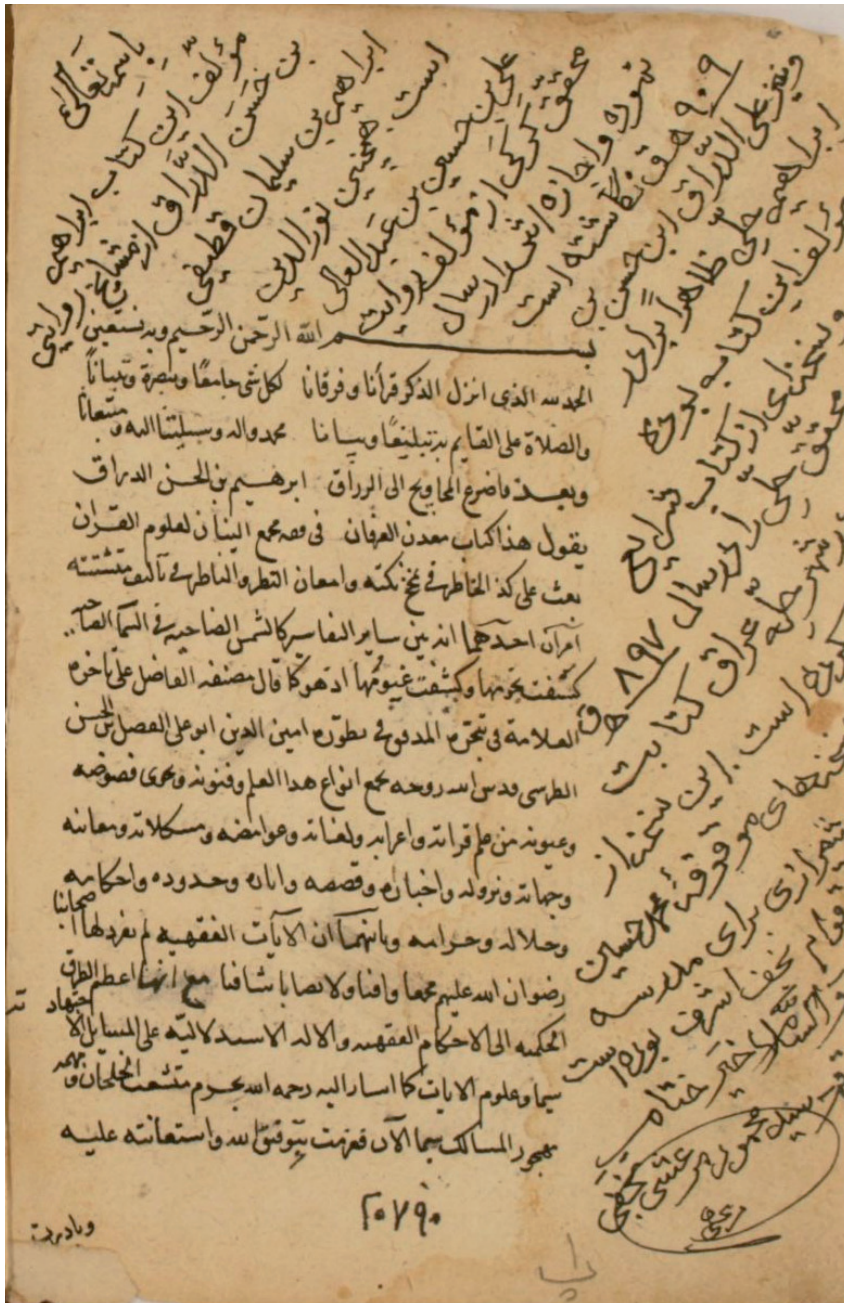 باسمه تعالی
مؤلف این کتاب ابراهیم
بن حسن الدراق از مشایخ روایتی
ابراهیم بن سلیمان قطیفی
است همچنین نورالدین
علی بن حسین بن عبدالعالی
محقق کرکی از مؤلف روایت
نموده و اجازه اش را در سال
۹۰۹ هـ ق نگاشته است
و نیز علی الدراق ابن حسن بن
ابراهیم حلی ظاهراً برادر
مؤلف این کتاب بوده
و نسخه‌ای از کتاب شرایع
محقق حلی را در سال ۸۹۷ هـ ق
در شهر حله عراق کتابت
کرده است. این نسخه از
نسخه‌های موقوفه محمد حسین
شیرازی برای مدرسه
قوام نجف اشرف بوده است
والسلام خیر ختام
سید محمود مرعشی نجفی
بسم الله الرحمن الرحیم وبه نستعین
الحمد لله الذی انزل الذکر قرآنا وفرقانا لکل شی جامعًا وتبصرة وتبیاناً
والصلاة علی القایم به تبلیغًا وبیانا محمد واله وسیلتنا الیه
وبعد فاضرع المحاویج الی الرزاق ابرهیم بن الحسن الدراق
یقول هذا کتاب معدن العرفان فی فقه مجمع البیان لعلوم القران
بعث علی کد الخاطر فی نکته وامعان النظر والناظر فی تآلیف متشتته
امران احدهما انه بین سایر التفاسیر کالشمس الضاحیه فی السما
کشفت نجومها وکشفت غیومها اذ هو کما قال مصنفه الفاضل علی تاخره
العلامة فی تبحره المدقق فی تطوره امین الدین ابو علی الفضل بن الحسن
الطبرسی قدس الله روحه یجمع انواع هذا العلم وفنونه ویحوی فصوصه
وعیونه من علم قراته واعرابه ولغاته وغوامضه ومشکلاته ومعانیه
وجهاته ونزوله واخباره وقصصه واثاره وحدوده واحکامه
وحلاله وحرامه وثانیهما ان الآیات الفقهیه لم یفردها اصحابنا
رضوان الله علیهم جمعا وافیا ولا نصابا شافیا مع انها اعظم الطرق
الحکمیه الی الاحکام الفقهیه والادلة الاستدلالیة علی المسایل الاجتهاد
سیما وعلوم الایات کما اشار الیه رحمه الله
مهجور المسالک سیما الآن فعزمت بتوفیق الله واستعانته علیه
۲۰۷۹۰
وبادرت